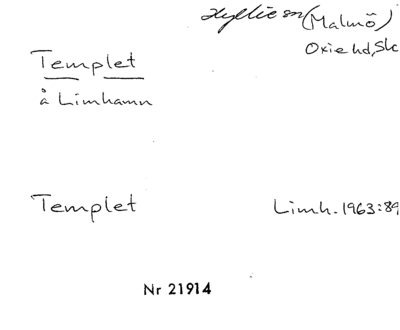 Hyllie sn (Malmö)
Oxie hd, Sk
Templet
å Limhamn
Templet
Limh. 1963:89
Nr 21914